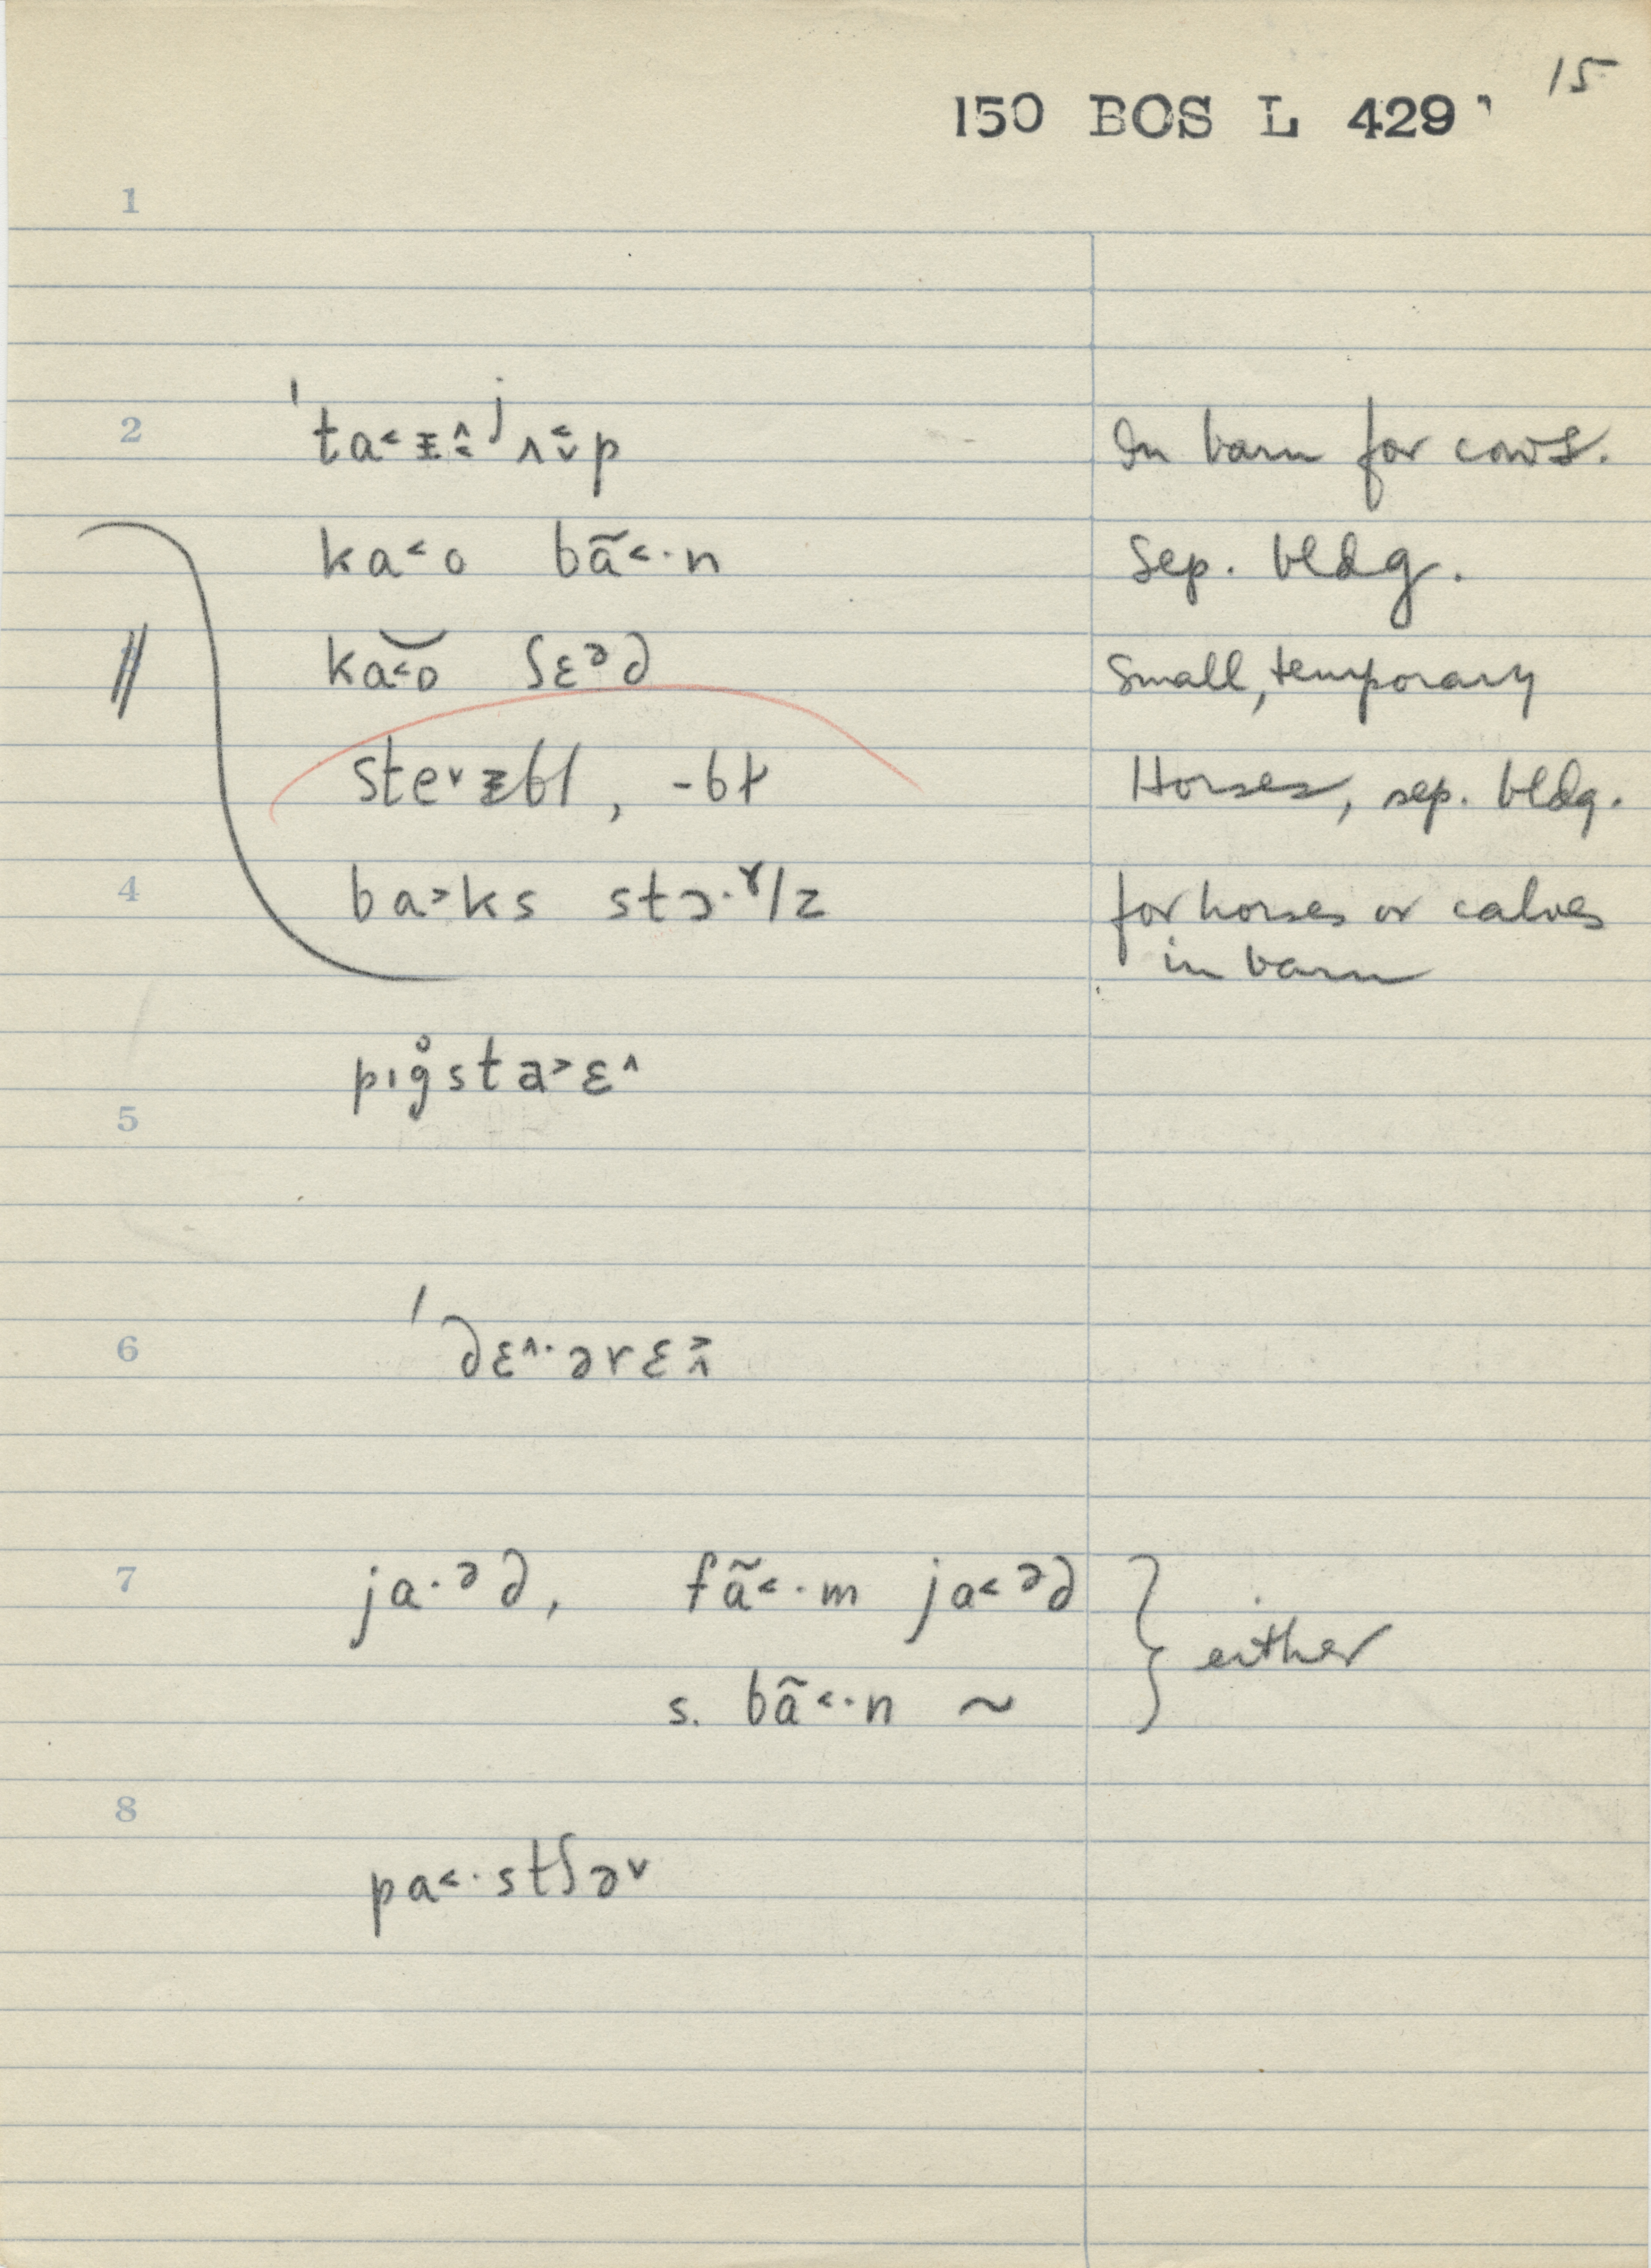 15
150 BOS L 429
1
2 ˈta˂ᵻ̂˂ʲʌ̬̆p In barn for cows.
ka˂o bã˂·n Sep. bldg.
ka˂o ʃɛᵊd Small, temporary
ste˅ᵻbl, -bɫ Horses, sep. bldg.
4 ba˃ks stɔ·ˠlz for horses or calves
in barn
pɪg̊sta˃ɛ˄
5
6 ˈdɛ˄·ərɛ˃˄
7 ja·ᵊd, fã˂·m ja˂ᵊd } either
s. bã˂·n ~
8
pa˂·stʃə˅